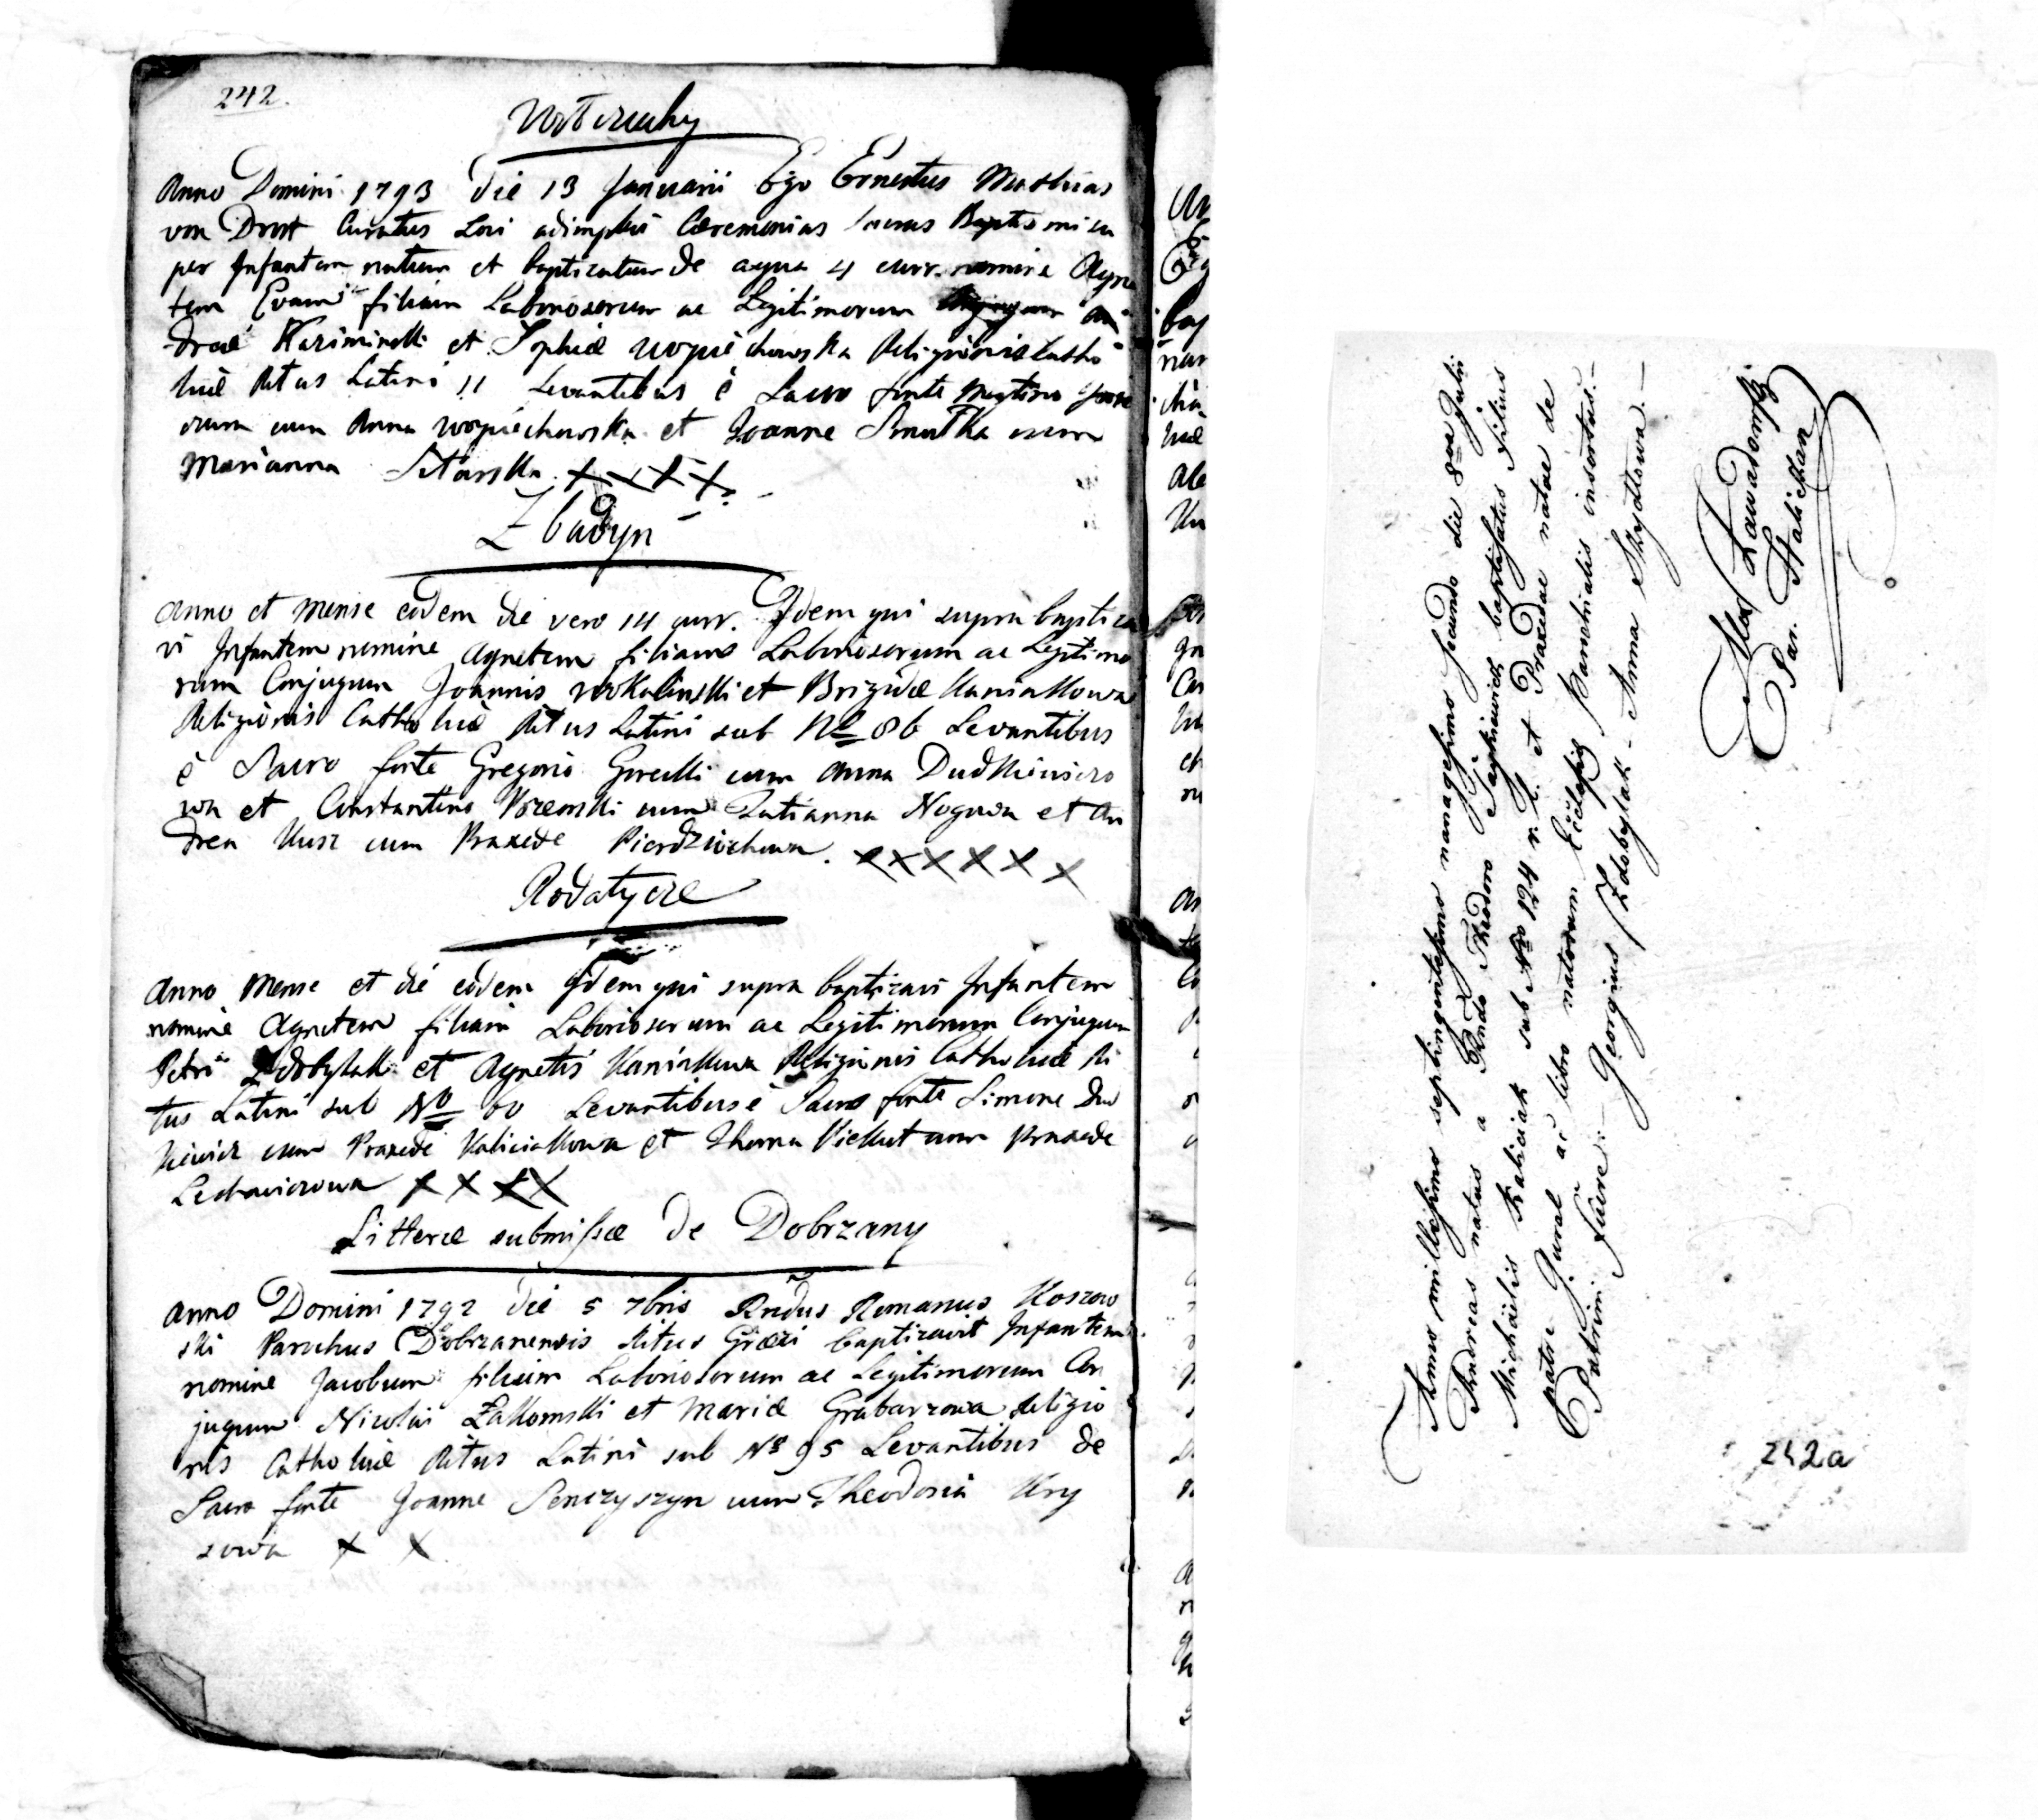 242.
Anno Domini 1793 die 13 Januarii Ego Ernestus Mathias
von Drost Curatus Loci adimplevi Ceremonias Sacras Baptismi su
per Infantem natum et baptizatum de aqua 4 curr. nomine Agne
tem Evam filiam Laboriosorum ac Legitimorum An
dreae Kaziminski et Sophiae Woyciechowska Religionis Catho
licae Ritus Latini Levantibus è Sacro fonte
cum Anna Woyciechowska et Joanne Smutka cum
Marianna Sitarska x x x x
Zbadyn
Anno et Mense eodem die vero 14 curr. Idem qui supra baptiza
vi Infantem nomine Agnetem filiam Laboriosorum ac Legitimo
rum Conjugum Joannis Wokalinski et Brizidae Kaniakowa
Religionis Catholicae Ritus Latini sub No 86 Levantibus
è Sacro fonte Gregorio Gorecki cum Anna
wa et Constantino cum Tatianna Nogowa et An
drea Kusz cum Praxede x x x x x x
Rodatycze
Anno Mense et die eodem Idem qui supra baptizavi Infantem
nomine Agnetem filiam Laboriosorum ac Legitimorum Conjugum
Petri Zdobylak et Agnetis Kaniakowa Religionis Catholicae Ri
tus Latini sub No 60 Levantibus è Sacro fonte Simone Du
kiewicz cum Praxede Kaliciakowa et Thoma Piekut cum Praxede
Lechowiczowa x x x x
Litterae submissae de Dobrzany
Anno Domini 1792 die 5 7bris Rndus Romanus Koszow
ski Parochus Dobrzanensis Ritus Graeci baptizavit Infantem
nomine Jacobum filium Laboriosorum ac Legitimorum Con
jugum Nicolai Zakomski et Mariae Grabarzowa Religio
nis Catholicae Ritus Latini sub No 95 Levantibus de
Sacro fonte Joanne Senczyszyn cum Theodosia Kry
sowa x x
Anno millesimo septingentesimo nonagesimo secundo die 8va Julii
Andreas natus a Rndo Theodoro baptisatus filius
Michaëlis Kaliciak sub Nro 124 r. l. et Praxedae natae de
patre Gural ac libro natorum Ecclesiae Parochialis insertus.—
Patrini fuere: Georgius Zdobylak - Anna Skrydlowa.—
Alex Zawadowski
Par. Halickan
242a